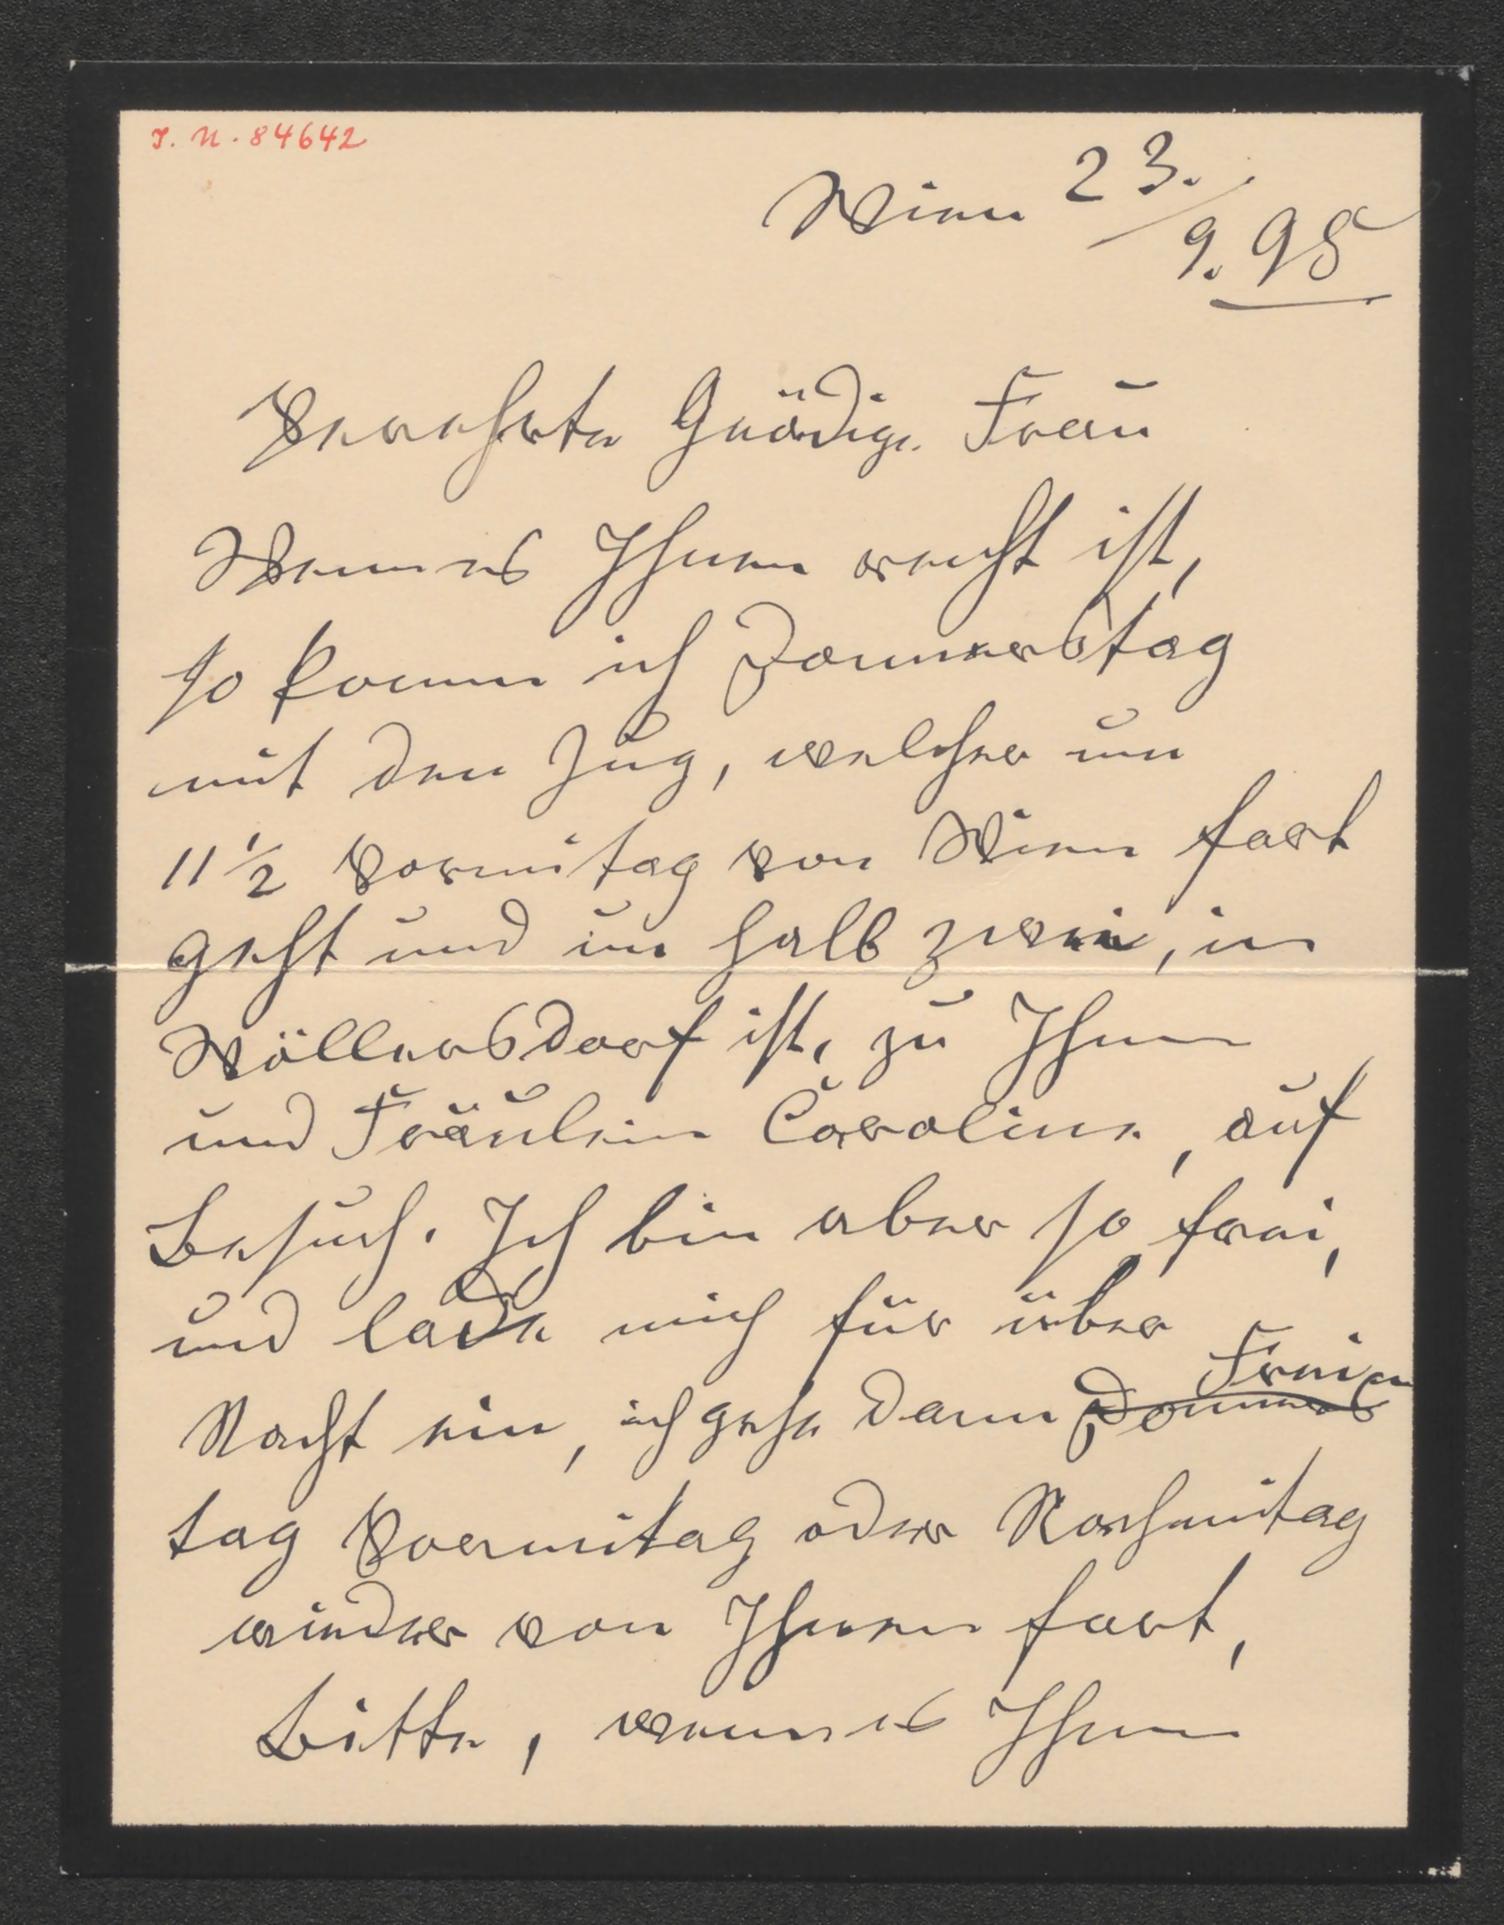 I. N. 84642
Wien 23./9. 95
Verehrte Gnädige Frau
Wenn es Ihnen recht ist,
so komm ich Donnerstag
mit den Zug, welcher um
11 1/2 Vormitag von Wien fort
geht und um halb zwei, in
Wöllersdorf ist, zu Ihnen
und Fräulein Caroline, auf
Besuch. Ich bin aber so frei,
und lade mich für über
Nacht ein, ich gehe dann Donners Freien
tag Vormitag oder Nachmitag
wieder von Ihnen fort,
Bitte, wenn es Ihnen